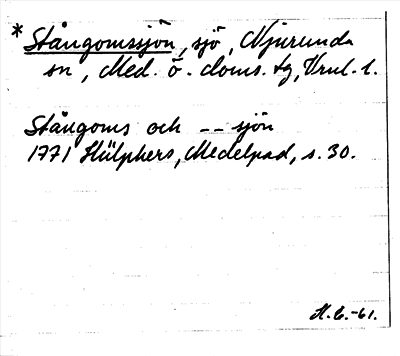 * Stångomssjön, sjö, Njurunda
sn, Med. ö. doms. tg, Vml. 1.
Stångoms och -- sjön
1771 Hülphers, Medelpad, s. 30.
H.E.-61.